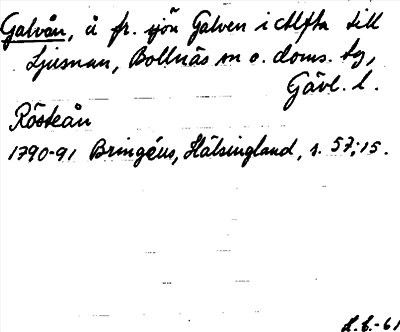 Galvån, å fr. sjön Galven i Alfta till
Ljusnan, Bollnäs sn o. doms. tg,
Gävl. l.
Rösteån
1790-91 Bringéus, Hälsingland, s. 57; 15.
L.E.-61